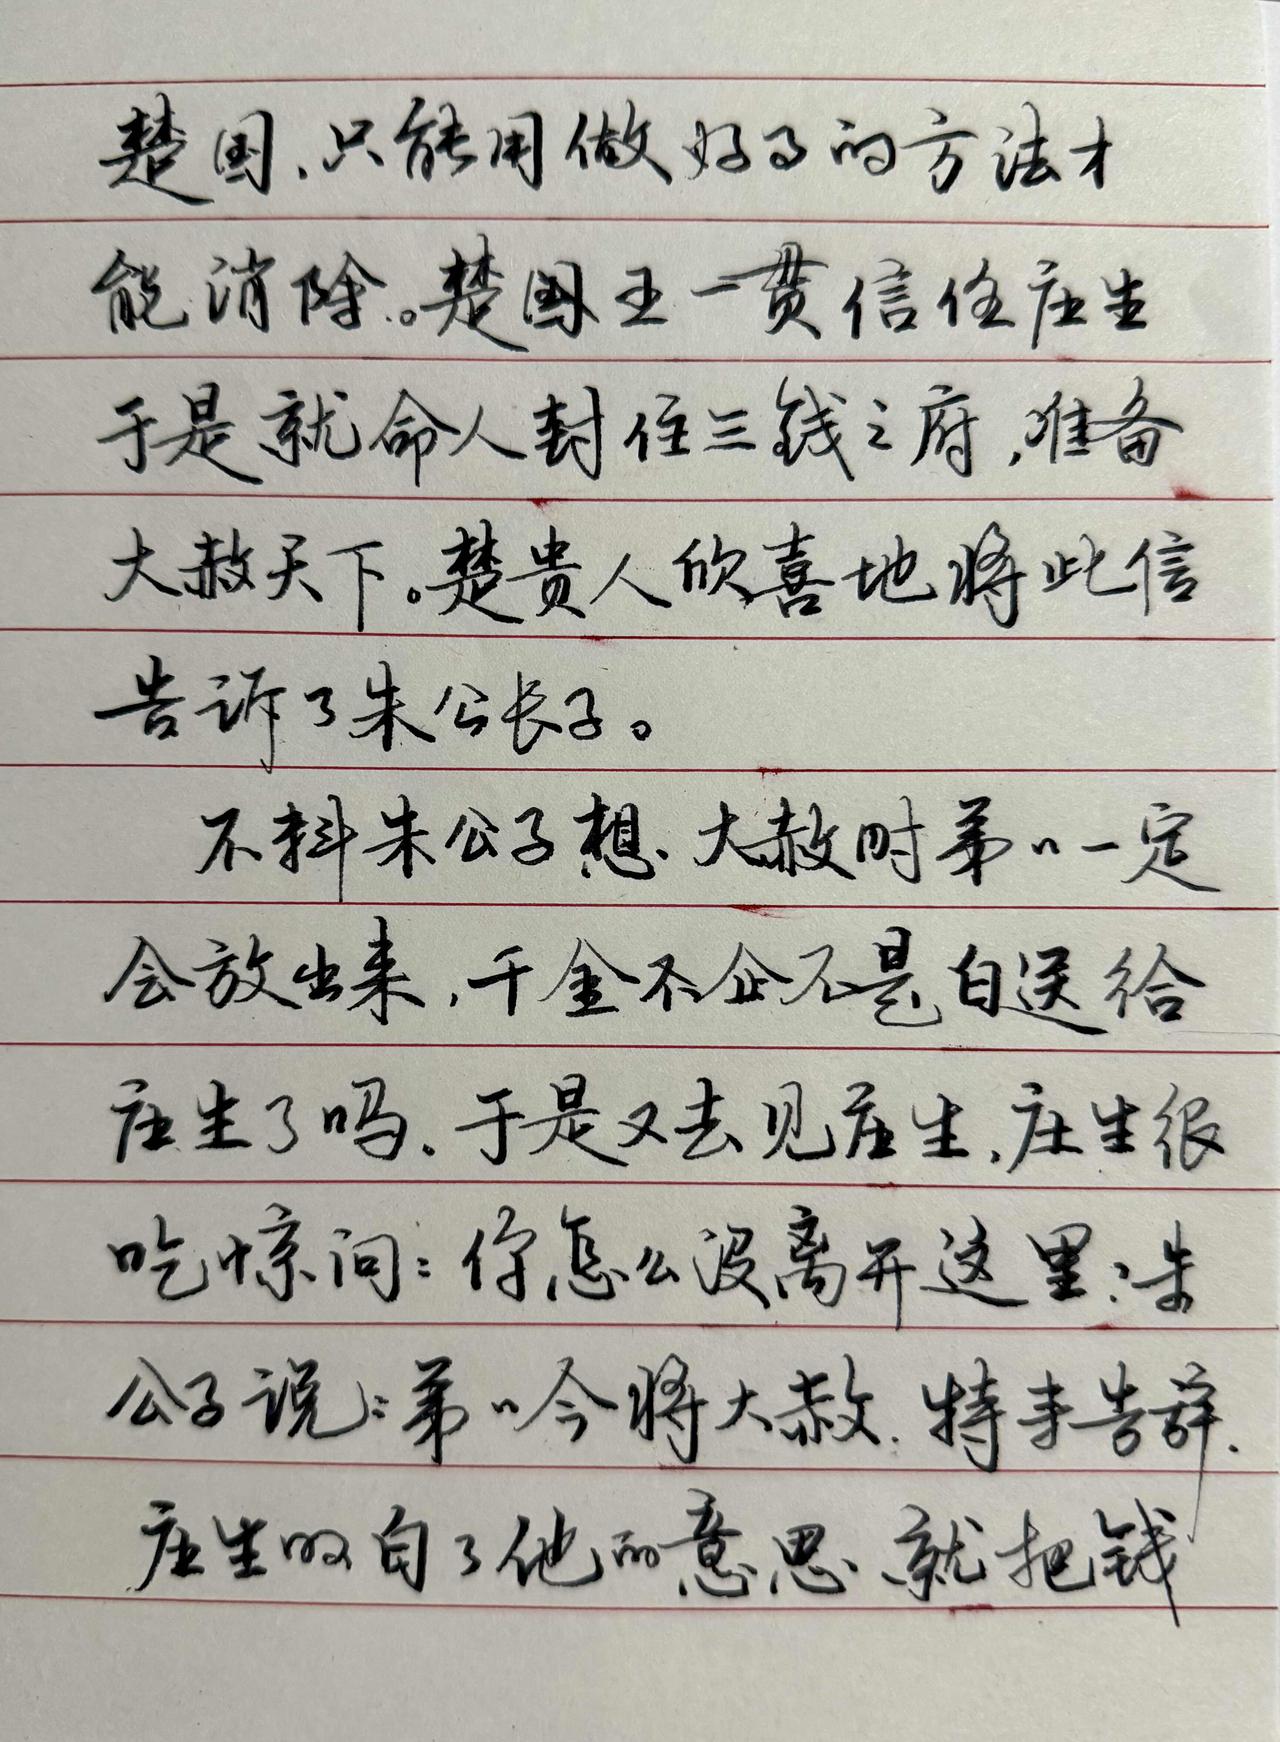 楚国、只能用做好事的方法才
能消除。楚国王一贯信任庄生
于是就命人封住三钱之府,准备
大赦天下。楚贵人欣喜地将此信
告诉了朱公长子。
不料朱公子想、大赦时弟一定
会放出来,千金不是白送给
庄生了吗、于是又去见庄生、庄生很
吃惊问:你怎么没离开这里?朱
公子说:弟今将大赦、特来告辞.
庄生明白了他的意思、就把钱